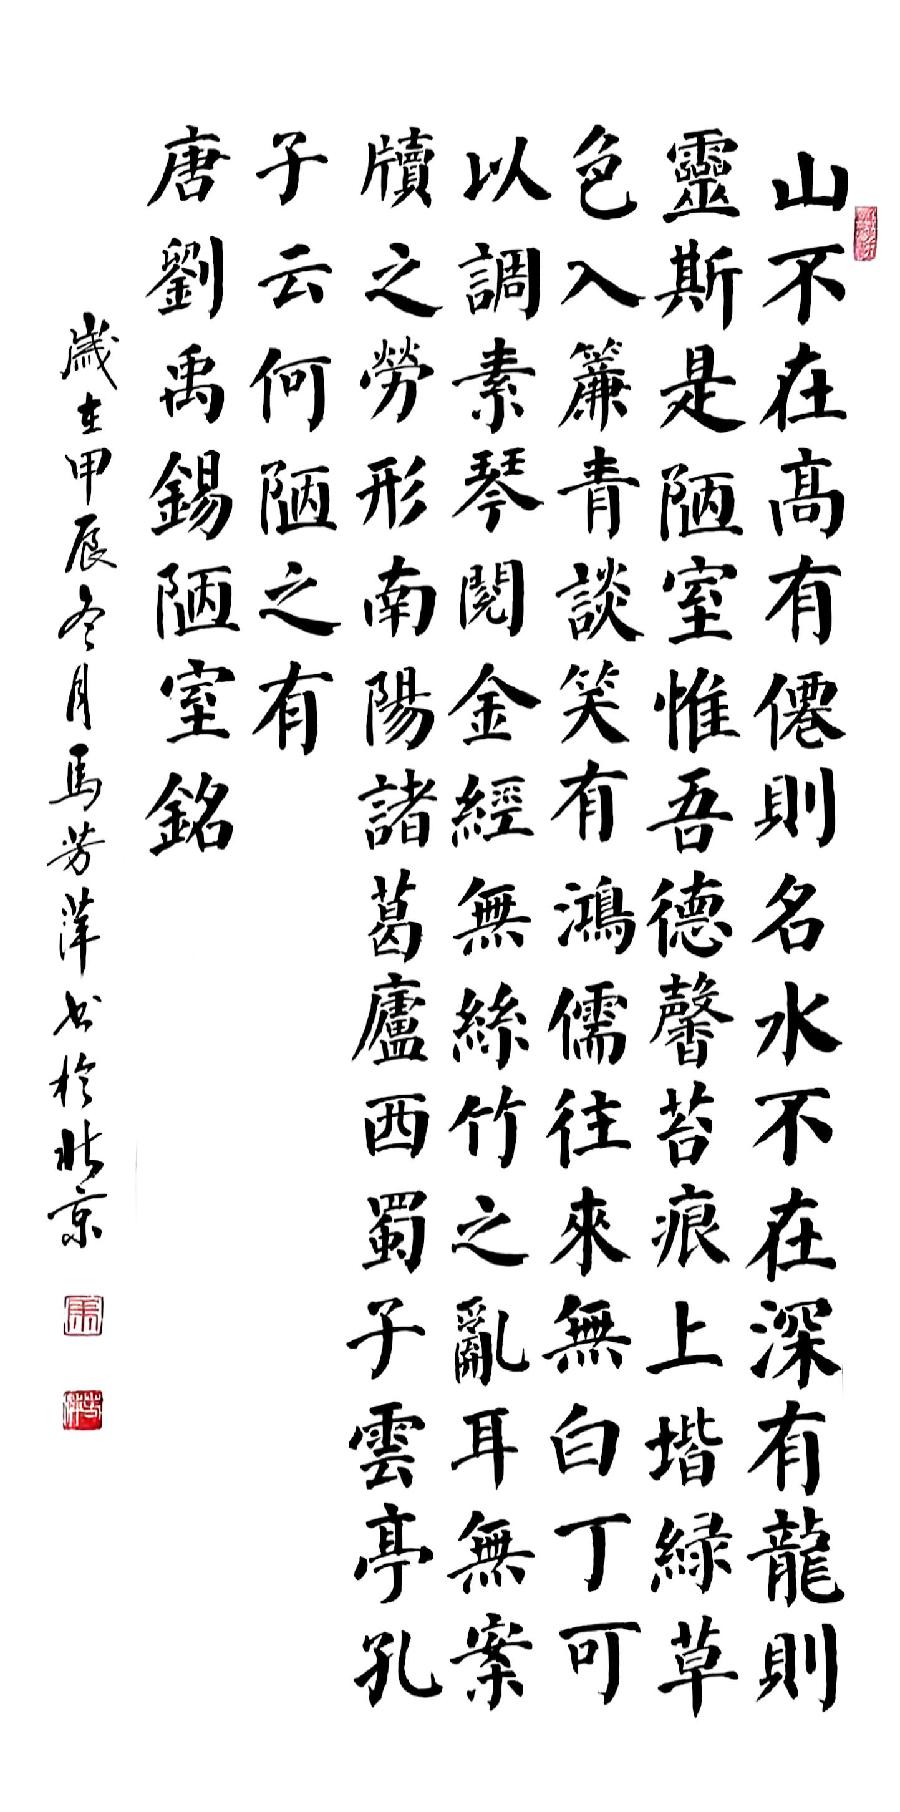 山不在高有僊則名水不在深有龍則
靈斯是陋室惟吾德馨苔痕上堦緑草
色入簾青談笑有鴻儒往來無白丁可
以調素琴閱金經無絲竹之亂耳無案
牘之勞形南陽諸葛廬西蜀子雲亭孔
子云何陋之有
唐劉禹錫陋室銘
歲在甲辰冬月馬芳萍书於北京